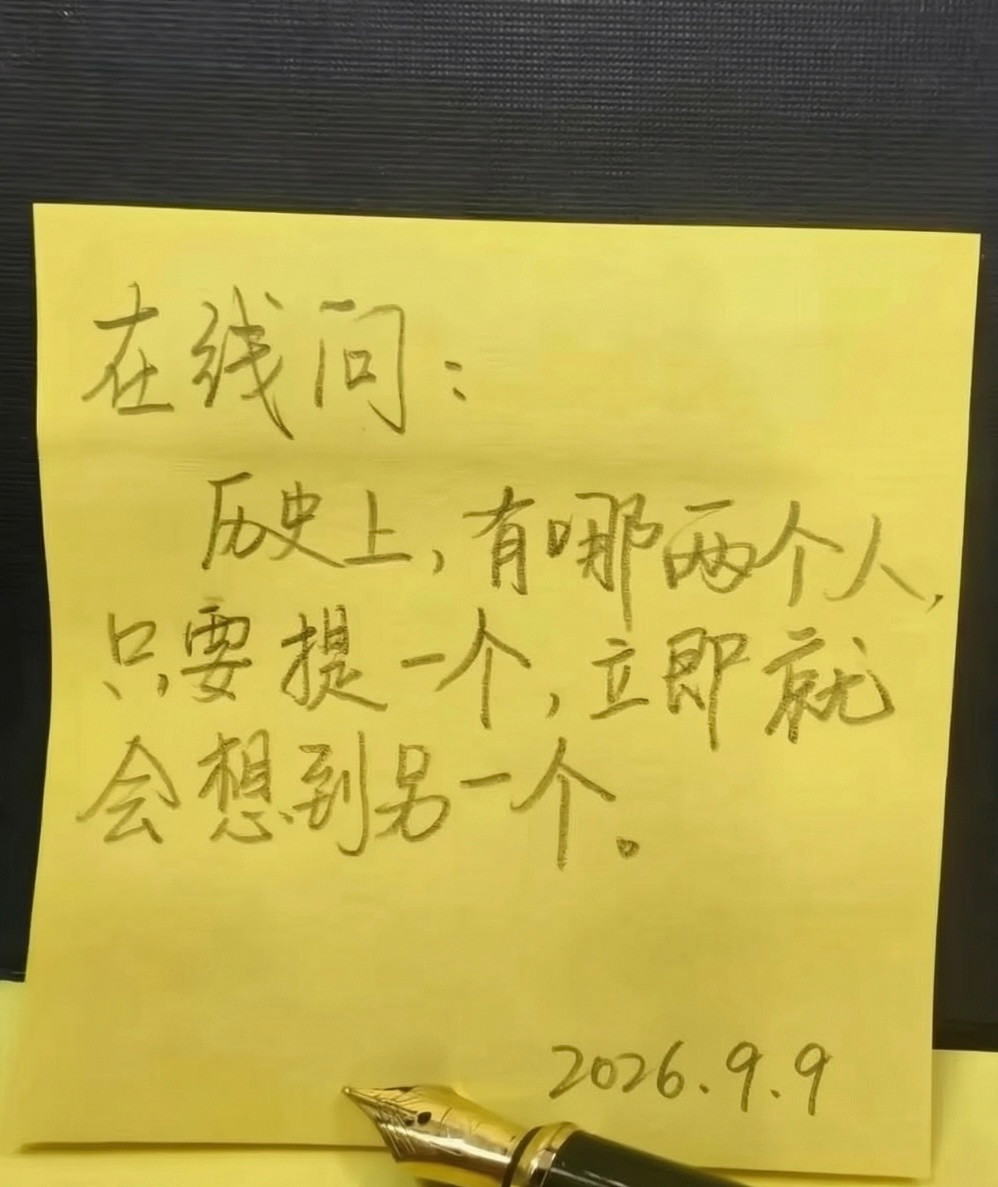 在线问：
历史上，有哪两个人，
只要提一个，立即就
会想到另一个。
2026.9.9